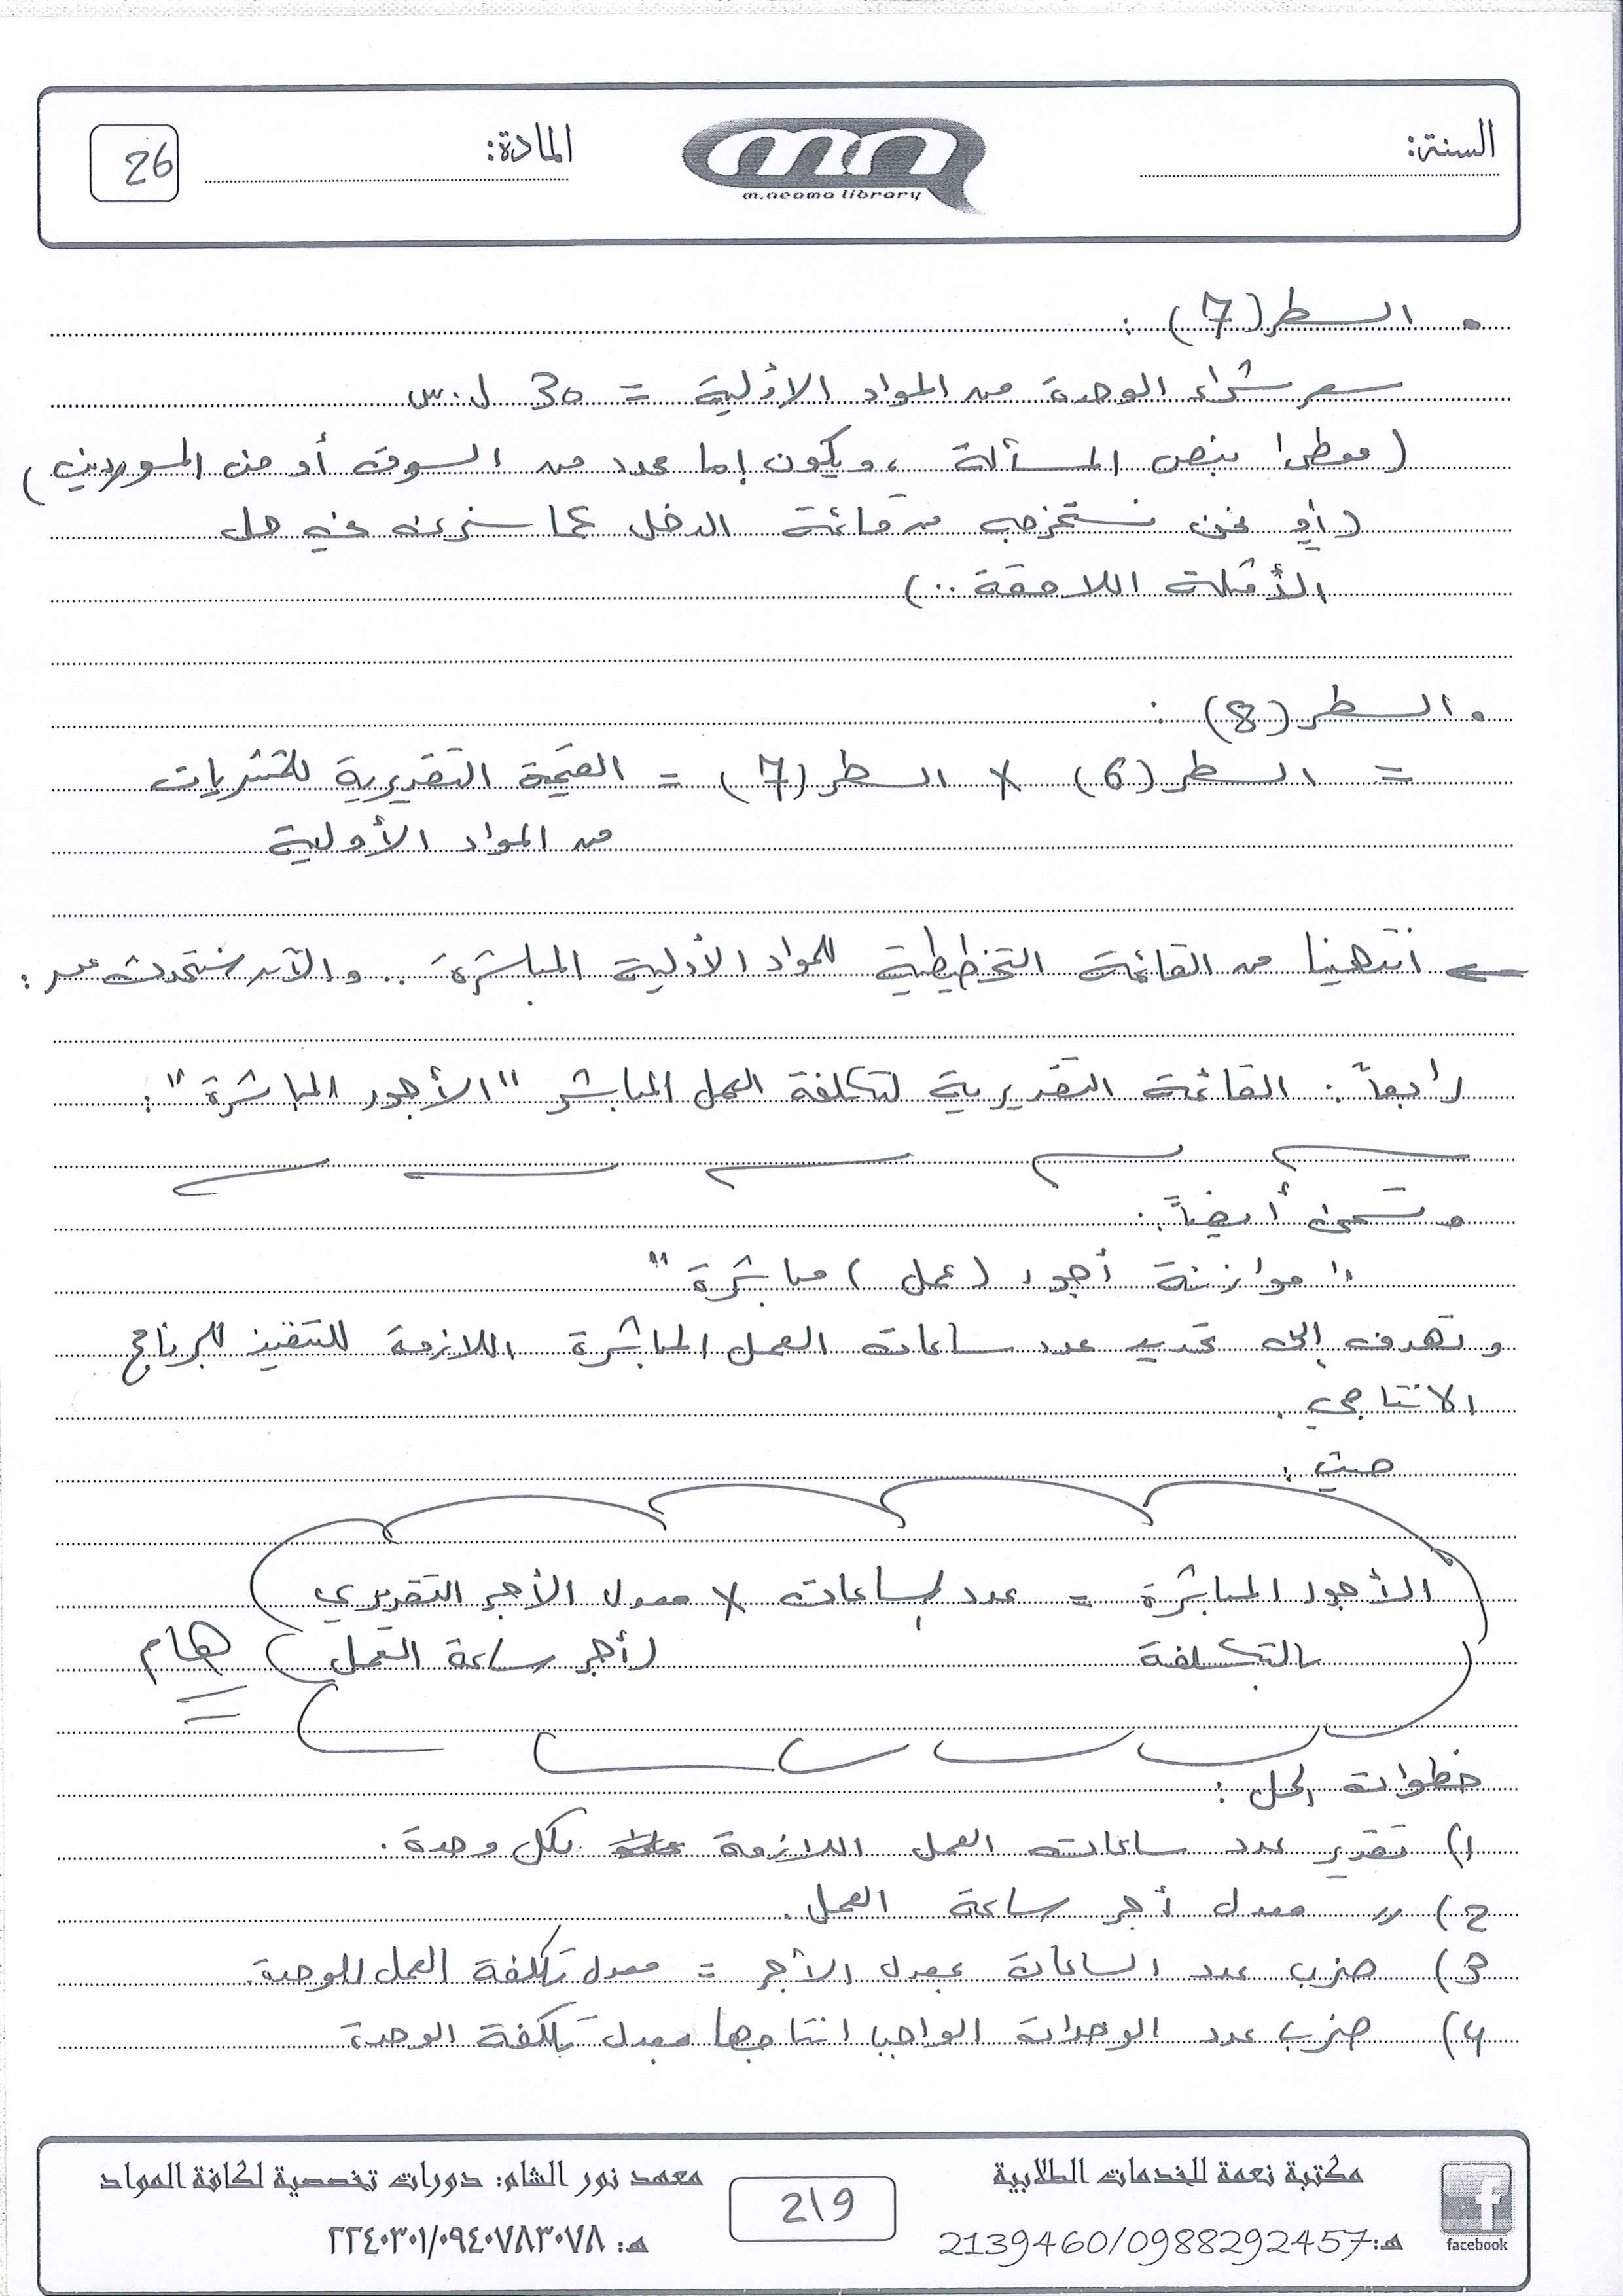 السنة:
المادة:
26
m.neama library
• السطر (7) :
سعر شراء الوحدة من المواد الأولية = 30 ل.س
( معطى بنص المسألة ، ويكون إما محدد من السوق أو من الموردين )
( أو نحن نستخرجه من قائمة الدخل كما سنرى في حل
الأمثلة اللاحقة .. )
• السطر (8) :
= السطر (6) × السطر (7) = القيمة التقديرية للمشتريات
من المواد الأولية
← انتهينا من القائمة التخطيطية للمواد الأولية المباشرة .. والآن سنتحدث عن :
رابعاً : القائمة التقديرية لتكلفة العمل المباشر "الأجور المباشرة" :
وتسمى أيضاً :
" موازنة أجور (عمل) مباشرة "
وتهدف إلى تحديد عدد ساعات العمل المباشرة اللازمة لتنفيذ البرنامج
الانتاجي .
حيث :
الأجور المباشرة = عدد الساعات × معدل الأجر التقديري
بالتكلفة (أجر ساعة العمل) هام
خطوات الحل :
1) تقدير عدد ساعات العمل اللازمة لكل وحدة .
2) 〃 معدل أجر ساعة العمل .
3) ضرب عدد الساعات بمعدل الأجر = معدل تكلفة العمل للوحدة .
4) ضرب عدد الوحدات الواجب انتاجها بمعدل تكلفة الوحدة
مكتبة نعمة للخدمات الطلابية
هـ: 2139460/0988292457
facebook
219
معهد نور الشام: دورات تخصصية لكافة المواد
هـ: ٢٢٤٠٣٠١/٠٩٤٠٧٨٣٠٧٨